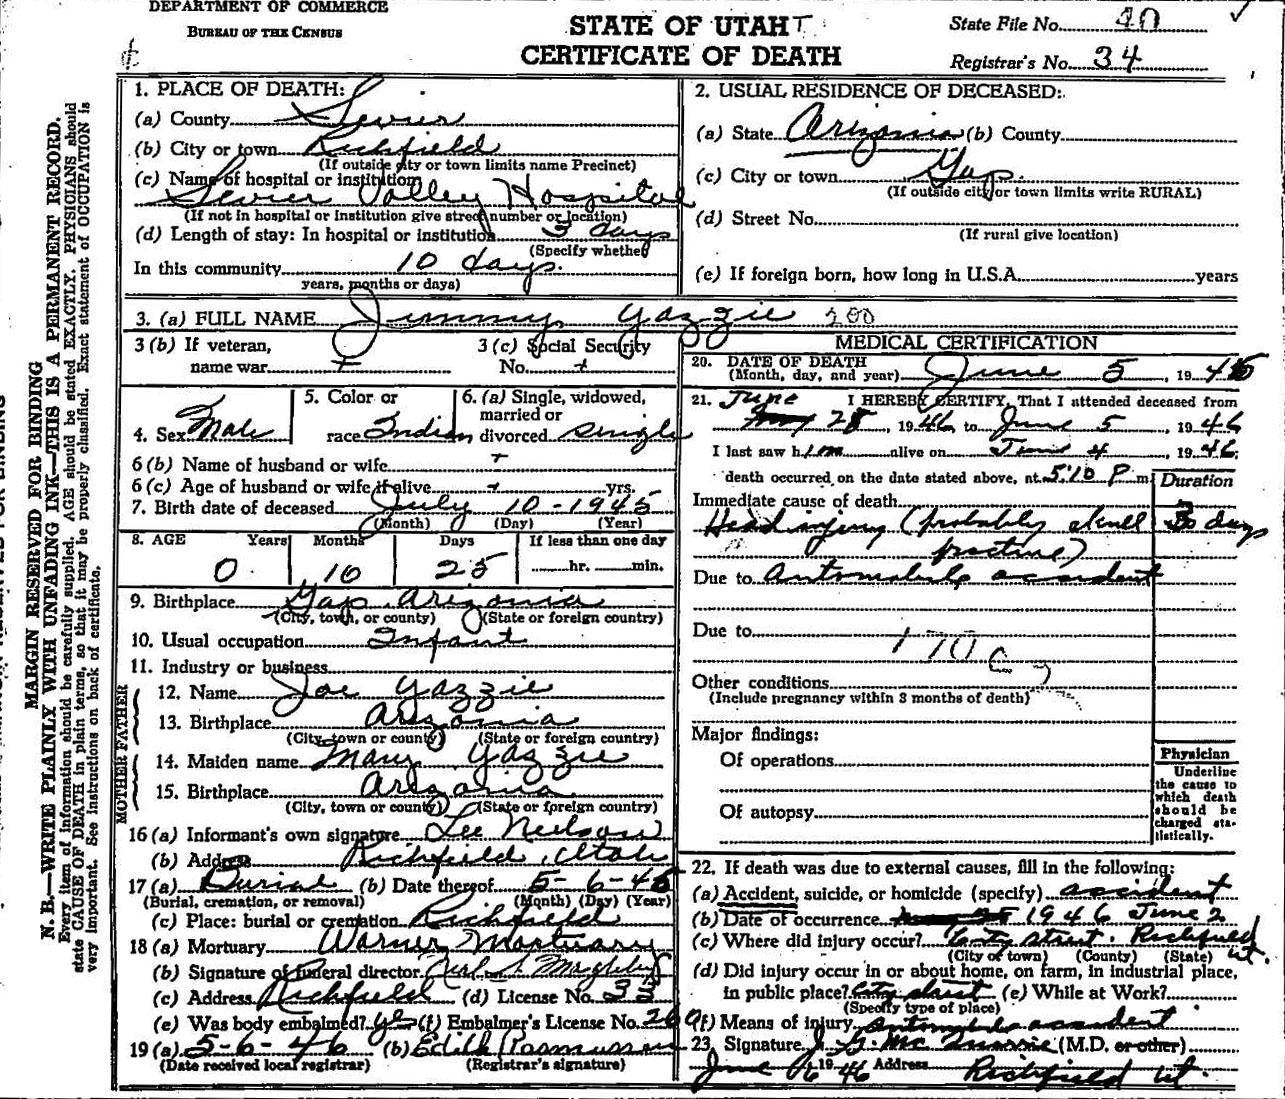 DEPARTMENT OF COMMERCE
BUREAU OF THE CENSUS
STATE OF UTAH
CERTIFICATE OF DEATH
State File No. 40
Registrar's No. 34
MARGIN RESERVED FOR BINDING
N. B.—WRITE PLAINLY WITH UNFADING INK—THIS IS A PERMANENT RECORD.
Every item of information should be carefully supplied. AGE should be stated EXACTLY. PHYSICIANS should
state CAUSE OF DEATH in plain terms, so that it may be properly classified. Exact statement of OCCUPATION is
very important. See instructions on back of certificate.
1. PLACE OF DEATH:
(a) County Sevier
(b) City or town Richfield
(If outside city or town limits name Precinct)
(c) Name of hospital or institution
Sevier Valley Hospital
(If not in hospital or institution give street number or location)
(d) Length of stay: In hospital or institution 3 days
(Specify whether
In this community 10 days.
years, months or days)
2. USUAL RESIDENCE OF DECEASED:
(a) State Arizonia (b) County
(c) City or town Gap.
(If outside city or town limits write RURAL)
(d) Street No.
(If rural give location)
(e) If foreign born, how long in U.S.A. years
3. (a) FULL NAME Jimmy Yazzie 200
3 (b) If veteran, name war
3 (c) Social Security No.
4. Sex Male
5. Color or race Indian
6. (a) Single, widowed, married or divorced single
6 (b) Name of husband or wife
6 (c) Age of husband or wife if alive yrs.
7. Birth date of deceased July 10-1945
(Month) (Day) (Year)
8. AGE Years Months Days If less than one day
0 10 25 hr. min.
9. Birthplace Gap. Arizonia
(City, town, or county) (State or foreign country)
10. Usual occupation Infant
11. Industry or business
FATHER
12. Name Joe Yazzie
13. Birthplace Arizonia
(City, town or county) (State or foreign country)
MOTHER
14. Maiden name Mary Yazzie
15. Birthplace Arizonia
(City, town or county) (State or foreign country)
16 (a) Informant's own signature Lee Neilson
(b) Address Richfield, Utah
17 (a) Burial (b) Date thereof 5-6-46
(Burial, cremation, or removal) (Month) (Day) (Year)
(c) Place: burial or cremation Richfield
18 (a) Mortuary Warner Mortuary
(b) Signature of funeral director
(c) Address Richfield (d) License No. 33
(e) Was body embalmed? yes (f) Embalmer's License No. 260
19 (a) 5-6-46 (b) Edith Rasmussen
(Date received local registrar) (Registrar's signature)
MEDICAL CERTIFICATION
20. DATE OF DEATH
(Month, day, and year) June 5, 1946
21. June I HEREBY CERTIFY, That I attended deceased from
May 28, 1946 to June 5, 1946
I last saw him alive on June 4, 1946;
death occurred on the date stated above, at 5:10 P m.
Duration
Immediate cause of death
Head injury (probably skull 3 days
fracture)
Due to Automobile accident
Due to
170c
Other conditions
(Include pregnancy within 3 months of death)
Major findings:
Of operations
Of autopsy
Physician
Underline
the cause to
which death
should be
charged sta-
tistically.
22. If death was due to external causes, fill in the following:
(a) Accident, suicide, or homicide (specify) accident
(b) Date of occurrence 1946 June 2
(c) Where did injury occur? City street. Richfield Ut.
(City or town) (County) (State)
(d) Did injury occur in or about home, on farm, in industrial place,
in public place? City street (e) While at Work?
(Specify type of place)
(f) Means of injury Automobile accident
23. Signature (M.D. or other)
June 6 1946 Address Richfield Ut.